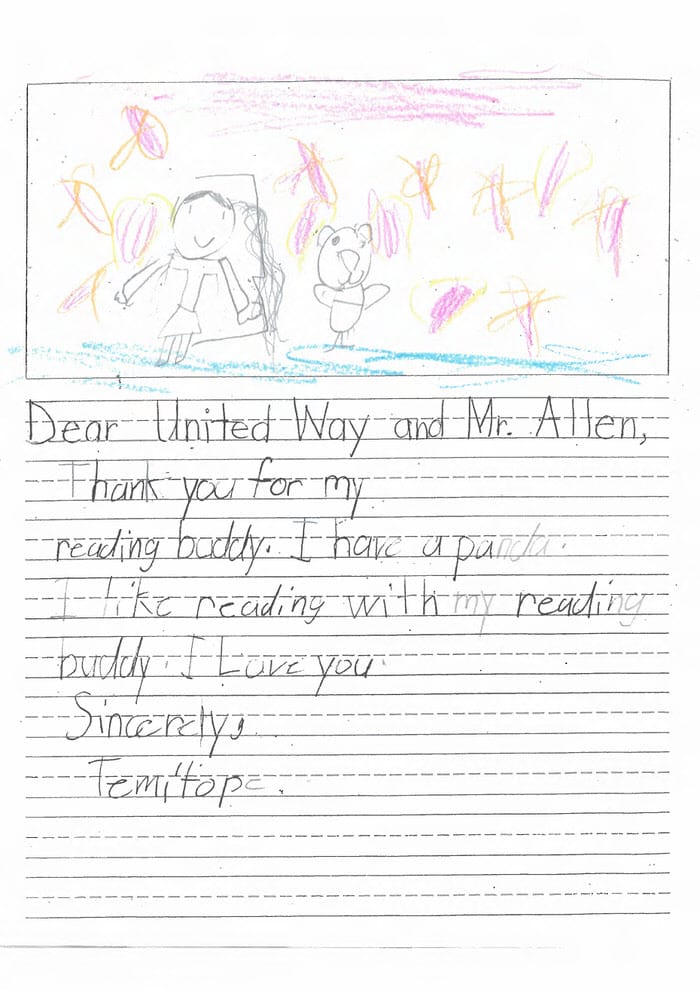 Dear United Way and Mr. Allen,
Thank you for my
reading buddy. I have a panda.
I like reading with my reading
buddy. I Love you.
Sincerely,
Temitope.